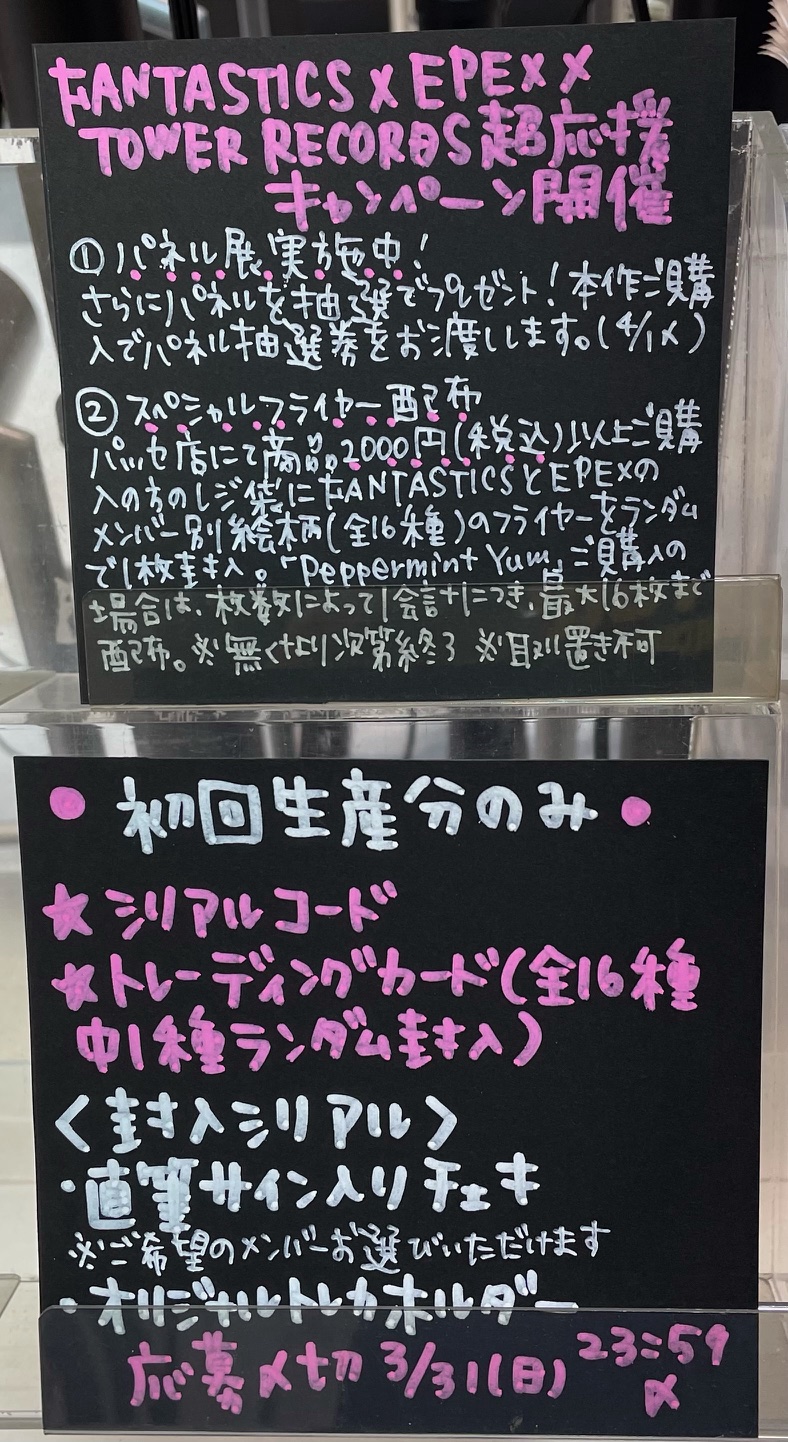 FANTASTICS X EPEX X
TOWER RECORDS 超応援
キャンペーン開催
① パネル展実施中!
さらにパネルを抽選でプレゼント!本作ご購
入でパネル抽選券をお渡しします。(4/1〆)
② スペシャルフライヤー配布
パッセ店にて商品2000円(税込)以上ご購
入の方のレジ袋にFANTASTICSとEPEXの
メンバー別絵柄(全16種)のフライヤーをランダム
で1枚封入。「Peppermint Yum」ご購入の
場合は、枚数によって1会計につき、最大16枚まで
配布。※無くなり次第終了 ※取り置き不可
● 初回生産分のみ ●
★シリアルコード
★トレーディングカード(全16種
中1種ランダム封入)
<封入シリアル>
・直筆サイン入りチェキ
※ご希望のメンバーお選びいただけます
・オリジナルトレカホルダー
応募〆切 3/31(日) 23:59
〆